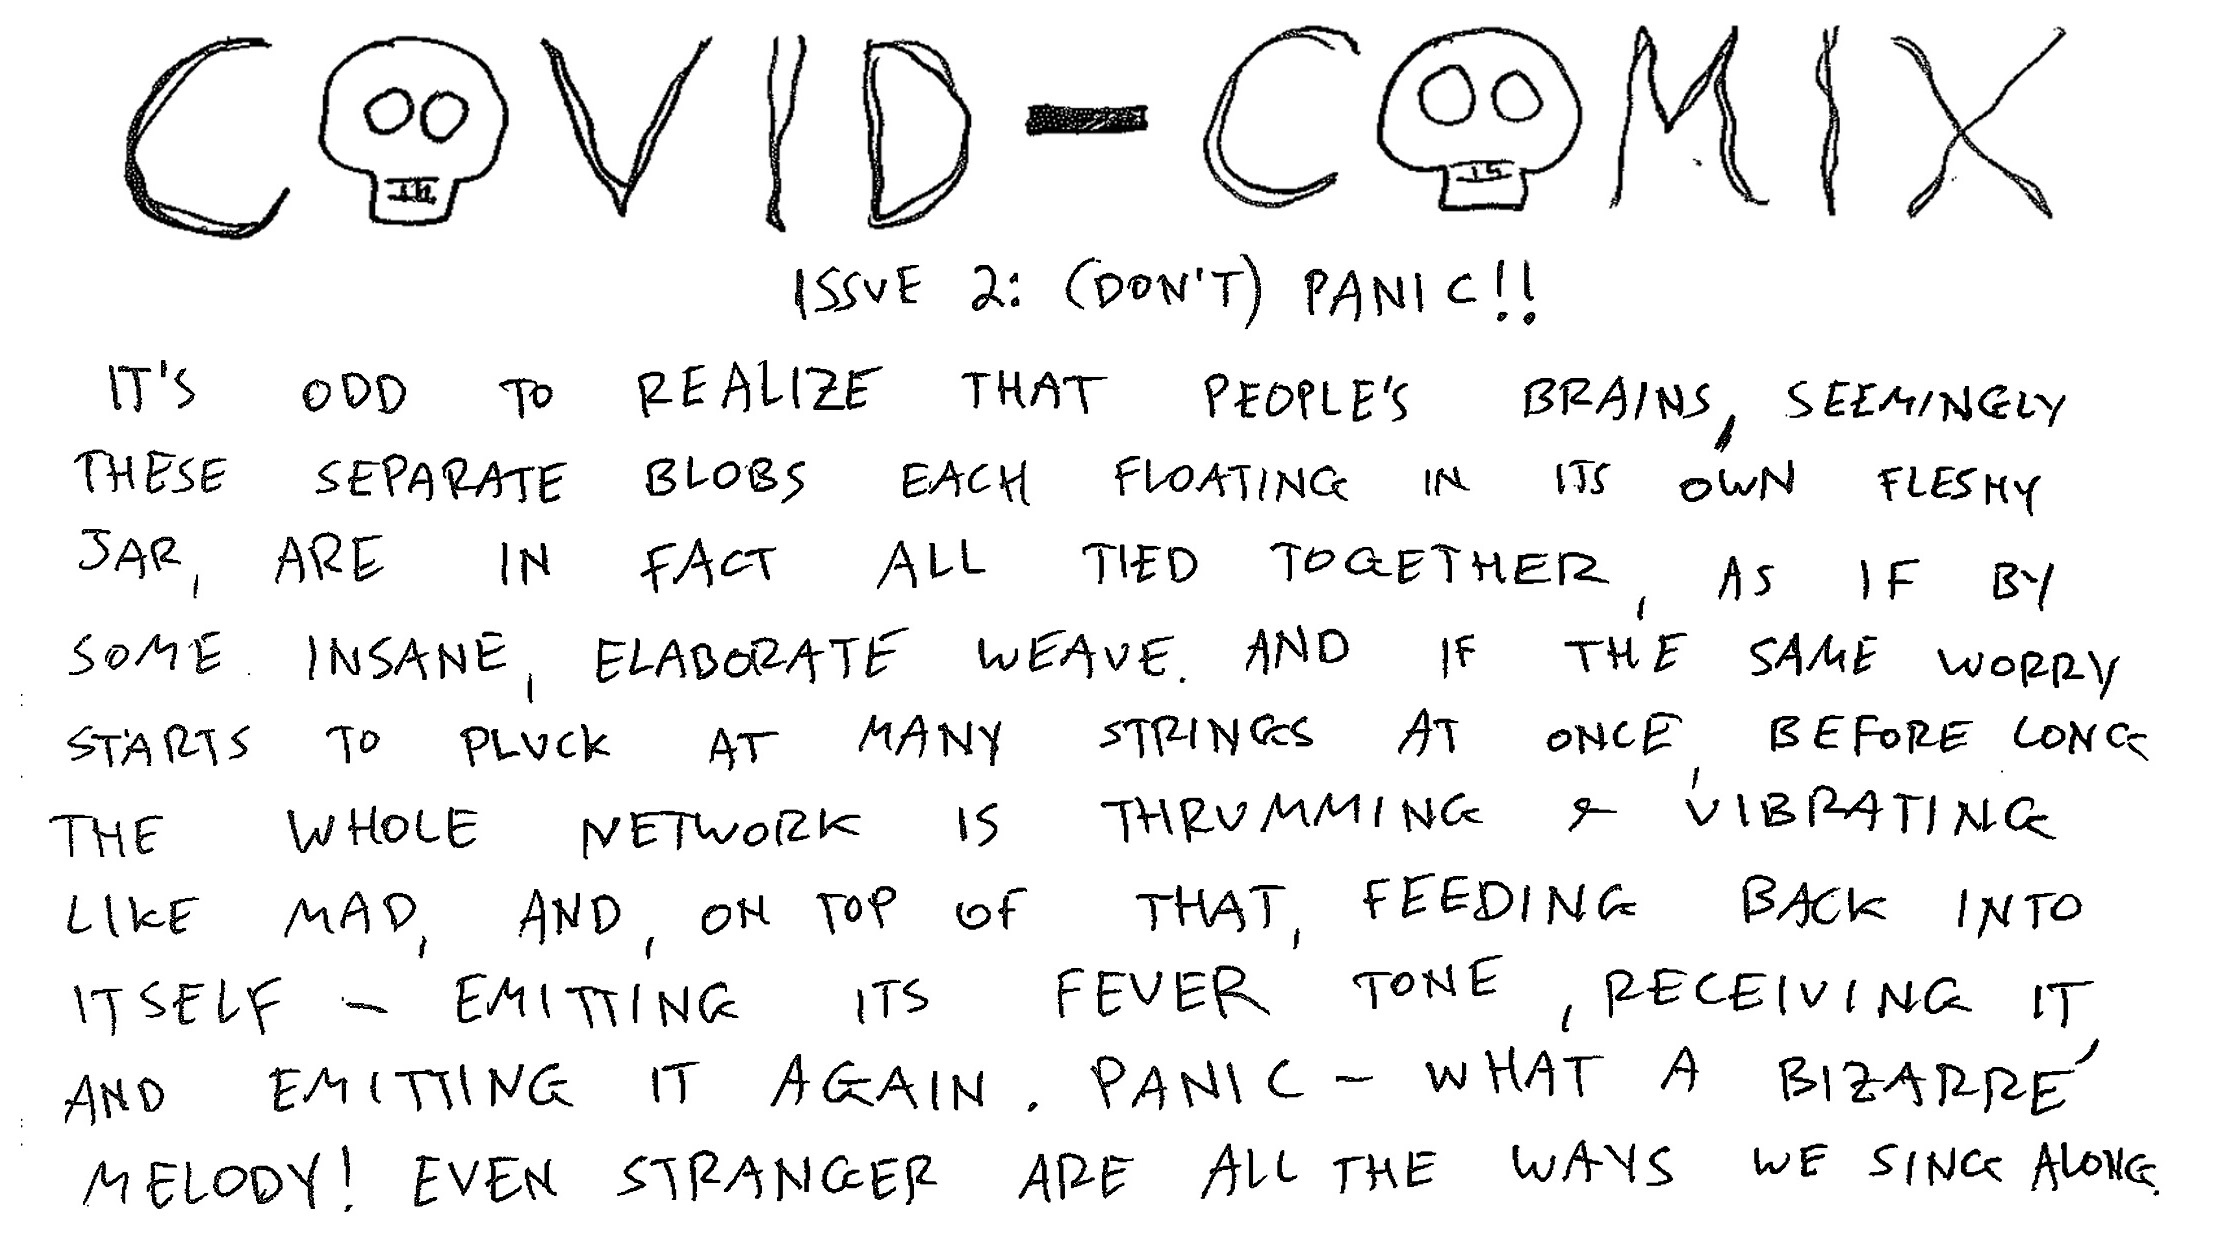 COVID-COMIX
ISSUE 2: (DON'T) PANIC!!
IT'S ODD TO REALIZE THAT PEOPLE'S BRAINS, SEEMINGLY
THESE SEPARATE BLOBS EACH FLOATING IN ITS OWN FLESHY
JAR, ARE IN FACT ALL TIED TOGETHER, AS IF BY
SOME INSANE, ELABORATE WEAVE. AND IF THE SAME WORRY
STARTS TO PLUCK AT MANY STRINGS AT ONCE, BEFORE LONG
THE WHOLE NETWORK IS THRUMMING & VIBRATING
LIKE MAD, AND, ON TOP OF THAT, FEEDING BACK INTO
ITSELF – EMITTING ITS FEVER TONE, RECEIVING IT,
AND EMITTING IT AGAIN. PANIC – WHAT A BIZARRE
MELODY! EVEN STRANGER ARE ALL THE WAYS WE SING ALONG.